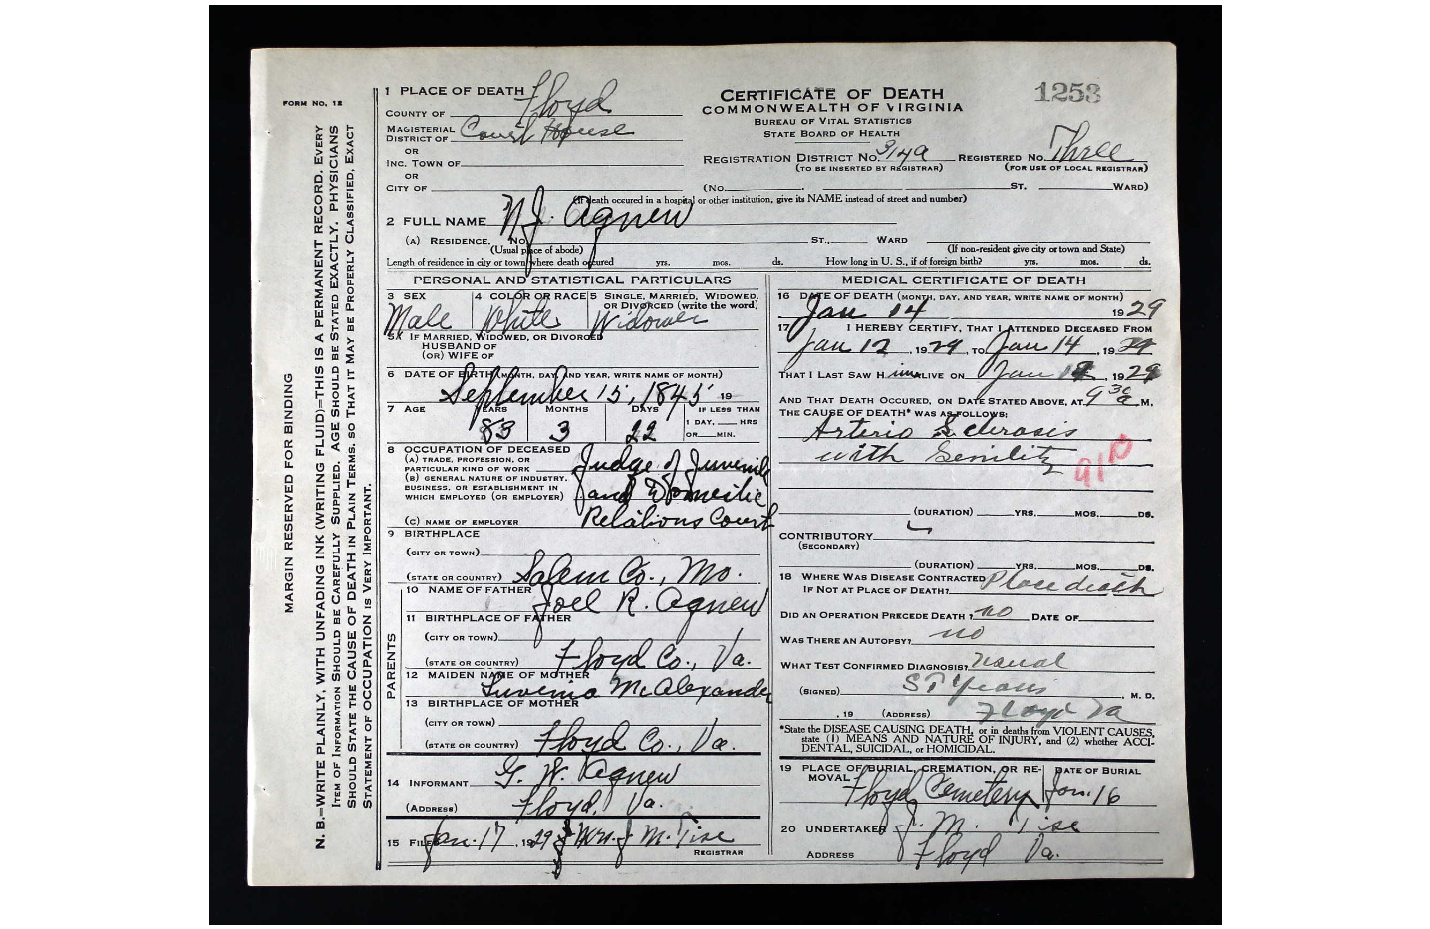 FORM No. 12
MARGIN RESERVED FOR BINDING
N. B.—WRITE PLAINLY, WITH UNFADING INK (WRITING FLUID)—THIS IS A PERMANENT RECORD. EVERY
ITEM OF INFORMATION SHOULD BE CAREFULLY SUPPLIED. AGE SHOULD BE STATED EXACTLY. PHYSICIANS
SHOULD STATE THE CAUSE OF DEATH IN PLAIN TERMS, SO THAT IT MAY BE PROPERLY CLASSIFIED. EXACT
STATEMENT OF OCCUPATION IS VERY IMPORTANT.
1 PLACE OF DEATH
COUNTY OF Floyd
MAGISTERIAL
DISTRICT OF Court House
OR
INC. TOWN OF
OR
CITY OF
CERTIFICATE OF DEATH
COMMONWEALTH OF VIRGINIA
BUREAU OF VITAL STATISTICS
STATE BOARD OF HEALTH
1253
REGISTRATION DISTRICT NO. 314a REGISTERED NO. Three
(TO BE INSERTED BY REGISTRAR) (FOR USE OF LOCAL REGISTRAR)
(NO. ST. WARD)
(If death occured in a hospital or other institution, give its NAME instead of street and number)
2 FULL NAME N.J. Agnew
(A) RESIDENCE. NO. ST., WARD
(Usual place of abode) (If non-resident give city or town and State)
Length of residence in city or town where death occured yrs. mos. ds. How long in U. S., if of foreign birth? yrs. mos. ds.
PERSONAL AND STATISTICAL PARTICULARS
3 SEX 4 COLOR OR RACE 5 SINGLE, MARRIED, WIDOWED,
OR DIVORCED (write the word)
Male White Widower
5A IF MARRIED, WIDOWED, OR DIVORCED
HUSBAND OF
(OR) WIFE OF
6 DATE OF BIRTH (MONTH, DAY, AND YEAR, WRITE NAME OF MONTH)
September 15, 1845 19
7 AGE YEARS MONTHS DAYS IF LESS THAN
1 DAY, HRS
83 3 22 OR MIN.
8 OCCUPATION OF DECEASED
(A) TRADE, PROFESSION, OR
PARTICULAR KIND OF WORK Judge of Juvenile
(B) GENERAL NATURE OF INDUSTRY,
BUSINESS, OR ESTABLISHMENT IN
WHICH EMPLOYED (OR EMPLOYER) and Domestic
(C) NAME OF EMPLOYER Relations Court
9 BIRTHPLACE
(CITY OR TOWN)
(STATE OR COUNTRY) Salem Co., Mo.
PARENTS
10 NAME OF FATHER Joel R. Agnew
11 BIRTHPLACE OF FATHER
(CITY OR TOWN)
(STATE OR COUNTRY) Floyd Co., Va.
12 MAIDEN NAME OF MOTHER Luvenia McAlexander
13 BIRTHPLACE OF MOTHER
(CITY OR TOWN)
(STATE OR COUNTRY) Floyd Co., Va.
14 INFORMANT G. W. Agnew
(ADDRESS) Floyd, Va.
15 FILED Jan. 17, 1929 Mrs. J M. Tise
REGISTRAR
MEDICAL CERTIFICATE OF DEATH
16 DATE OF DEATH (MONTH, DAY, AND YEAR, WRITE NAME OF MONTH)
Jan 14 1929
17 I HEREBY CERTIFY, THAT I ATTENDED DECEASED FROM
Jan 12, 1929, TO Jan 14, 1929
THAT I LAST SAW H im ALIVE ON Jan 1929
AND THAT DEATH OCCURED, ON DATE STATED ABOVE, AT 9 30 a M.
THE CAUSE OF DEATH* WAS AS FOLLOWS:
Arterio Sclerosis
with Senility
91
(DURATION) YRS. MOS. DS.
CONTRIBUTORY
(SECONDARY)
(DURATION) YRS. MOS. DS.
18 WHERE WAS DISEASE CONTRACTED
IF NOT AT PLACE OF DEATH? Place death
DID AN OPERATION PRECEDE DEATH? no DATE OF
WAS THERE AN AUTOPSY? no
WHAT TEST CONFIRMED DIAGNOSIS? usual
(SIGNED) , M. D.
, 19 (ADDRESS) Floyd Va
*State the DISEASE CAUSING DEATH, or in deaths from VIOLENT CAUSES,
state (1) MEANS AND NATURE OF INJURY, and (2) whether ACCI-
DENTAL, SUICIDAL, or HOMICIDAL.
19 PLACE OF BURIAL, CREMATION, OR RE- DATE OF BURIAL
MOVAL Floyd Cemetery Jan. 16
20 UNDERTAKER J. M. Tise
ADDRESS Floyd Va.